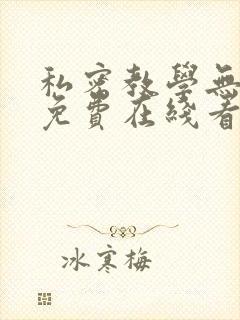 私密教學無
免費在綫看
冰寒梅